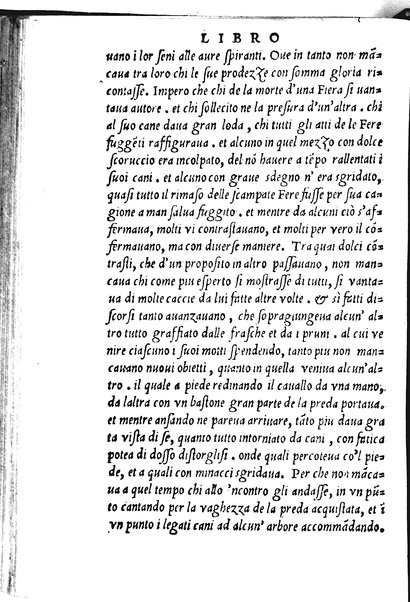 LIBRO
uano i lor seni alle aure spiranti. Oue in tanto non mã
caua tra loro chi le sue prodezze con somma gloria ri
contasse. Impero che chi de la morte d'una Fiera si uan
taua autore. et chi sollecito ne la presura d'un'altra. chi
al suo cane daua gran loda, chi tutti gli atti de le Fere
fuggẽti raffiguraua. et alcuno in quel mezzo con dolce
scoruccio era incolpato, del nó hauere a tẽpo rallentati i
suoi cani. et alcuno con graue sdegno n' era sgridato,
quasi tutto il rimaso delle scampate Fere fusse per sua ca
gione a man salua fuggito. et mentre da alcuni ciò s'af
fermaua, molti vi contrastauano, et molti per vero il cõ
fermauano, ma con diuerse maniere. Tra quai dolci cõ
trasti, che d'un proposito in altro passauano, non man
caua chi come piu esperto si mostrasse di tutti, si vanta
ua di molte caccie da lui fatte altre volte. & sì fatti di
scorsi tanto auanzauano, che sopragiungeua alcun' al
tro tutto graffiato dalle frasche et da i pruni. al cui ve
nire ciascuno i suoi motti spendendo, tanto piu non man
cauano nuoui obietti, quanto in quella veniua alcun'al
tro. il quale a piede redinando il cauallo da vna mano,
da laltra con vn bastone gran parte de la preda portaua.
et mentre ansando ne pareua arriuare, tãto piu daua gra
ta vista di se, quanto tutto intorniato da cani, con fatica
potea di dosso distorglisi. onde quali percoteua co'l pie-
de, et a quali con minacci sgridaua. Per che non mãca
ua a quel tempo chi allo 'ncontro gli andasse, in vn pũ
to cantando per la vaghezza de la preda acquistata, et i
vn punto i legati cani ad alcun' arbore accommãdando.